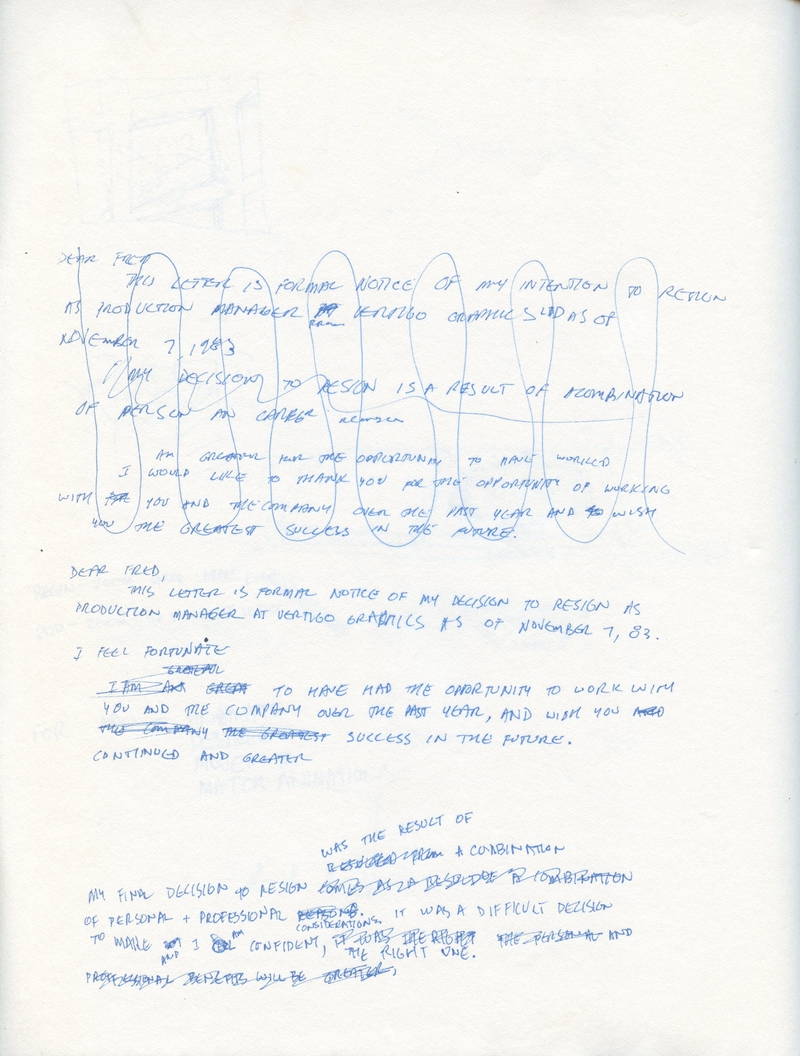 DEAR FRED
THIS LETTER IS FORMAL NOTICE OF MY INTENTION TO RESIGN
AS PRODUCTION MANAGER FROM VERTIGO GRAPHICS LTD AS OF
NOVEMBER 7, 1983
MY DECISION TO RESIGN IS A RESULT OF A COMBINATION
OF PERSON AN CAREER
AM GREATER FOR THE OPPORTUNITY TO HAVE WORKED
I WOULD LIKE TO THANK YOU FOR THE OPPORTUNITY OF WORKING
WITH THE YOU AND THE COMPANY OVER THE PAST YEAR AND TO WISH
YOU THE GREATEST SUCCESS IN THE FUTURE.
DEAR FRED,
THIS LETTER IS FORMAL NOTICE OF MY DECISION TO RESIGN AS
PRODUCTION MANAGER AT VERTIGO GRAPHICS AS OF NOVEMBER 7, 83.
I FEEL FORTUNATE
GRATEFUL
I AM GREAT TO HAVE HAD THE OPPORTUNITY TO WORK WITH
YOU AND THE COMPANY OVER THE PAST YEAR, AND WISH YOU AND
THE COMPANY THE GREATEST SUCCESS IN THE FUTURE.
CONTINUED AND GREATER
WAS THE RESULT OF
RESULTED FROM A COMBINATION
MY FINAL DECISION TO RESIGN COMES AS A RESULT OF A COMBINATION
OF PERSONAL + PROFESSIONAL REASONS. IT WAS A DIFFICULT DECISION
CONSIDERATIONS.
TO MAKE I AM CONFIDENT, IT WAS THE RIGHT THE PERSONAL AND
AND THE RIGHT ONE.
PROFESSIONAL BENEFITS WILL BE GREATER,